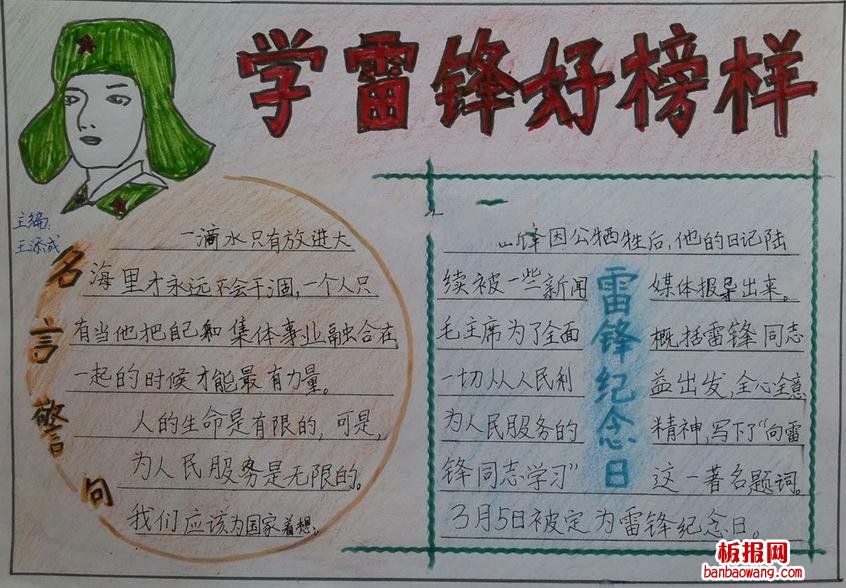 学雷锋好榜样
主编：
王添成
名言警句
一滴水只有放进大
海里才永远不会干涸，一个人只
有当他把自己和集体事业融合在
一起的时候才能最有力量。
人的生命是有限的，可是，
为人民服务是无限的。
我们应该为国家着想；
雷锋纪念日
锋因公牺牲后，他的日记陆
续被一些新闻媒体报导出来。
毛主席为了全面概括雷锋同志
一切从人民利益出发，全心全意
为人民服务的精神，写下了“向雷
锋同志学习”这一著名题词。
3月5日被定为雷锋纪念日。
板报网
banbaowang.com